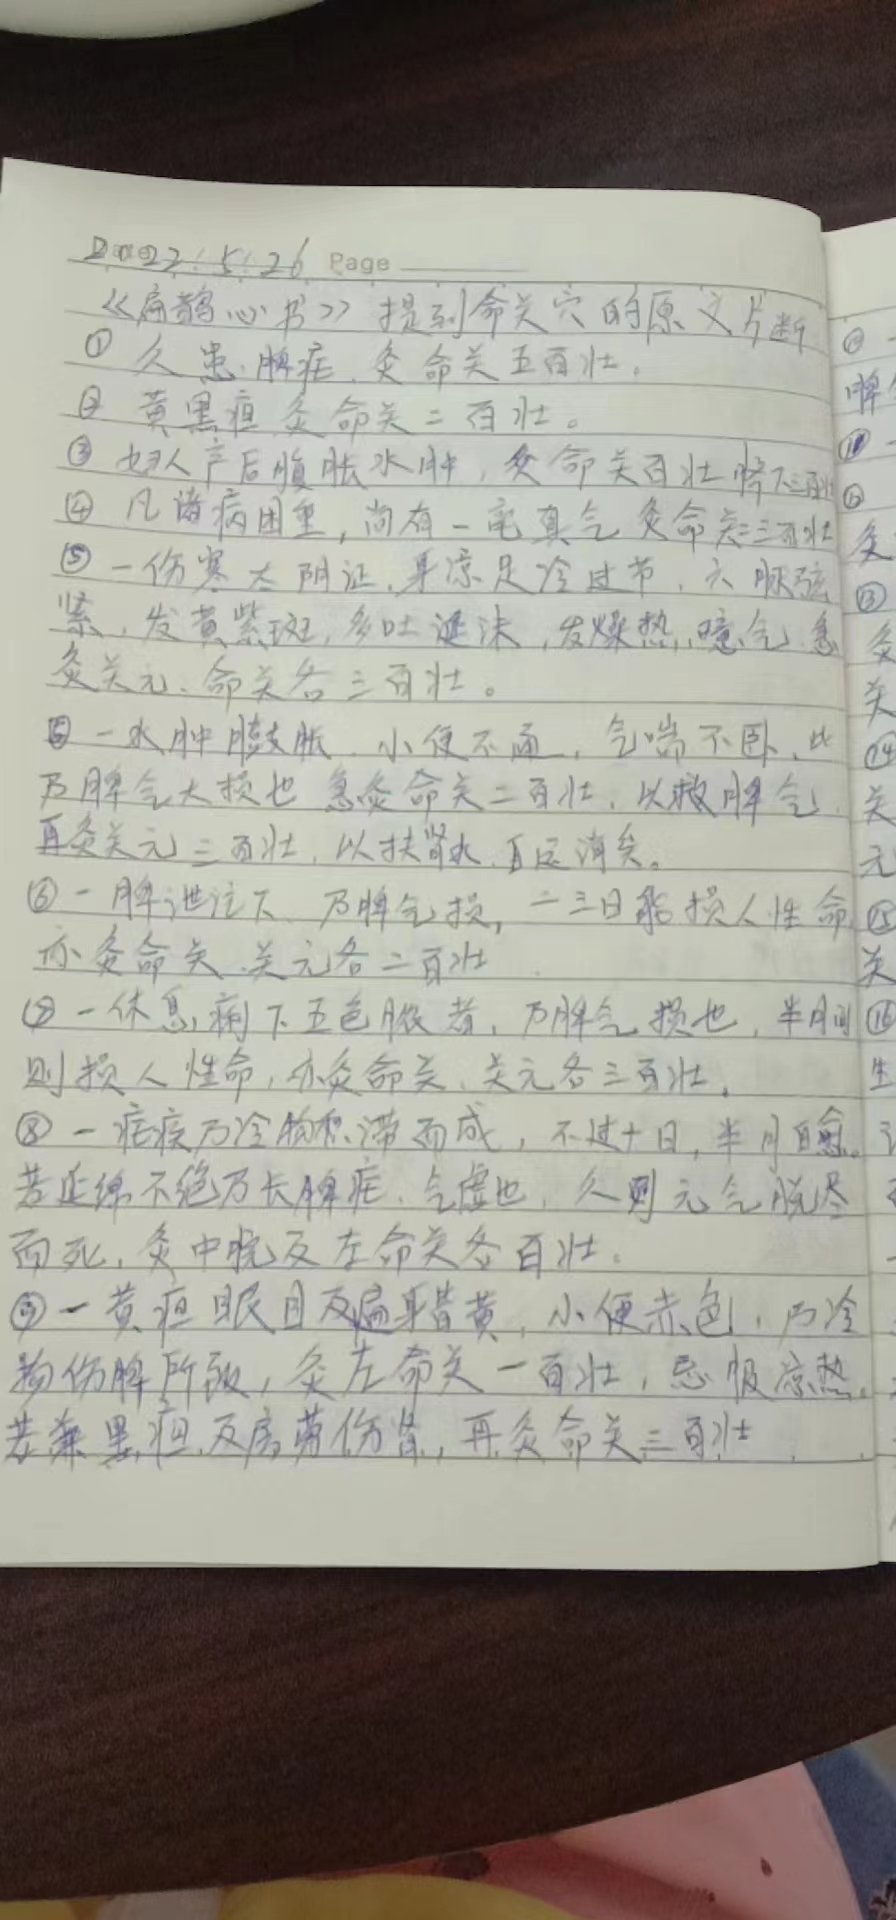 Date 22.5.26 Page
《扁鹊心书》提到命关穴的原文片断
① 久患脾疟,灸命关五百壮。
② 黄黑疸灸命关二百壮。
③ 妇人产后腹胀水肿,灸命关百壮脐下三百壮
④ 凡诸病困重,尚有一毫真气灸命关二三百壮
⑤ 一伤寒太阴证,身凉足冷过节,六脉弦
紧,发黄紫斑,多吐涎沫,发燥热,噫气,急
灸关元、命关各三百壮。
⑤ 一水肿膨胀,小便不通,气喘不卧,此
乃脾气大损也 急灸命关二百壮,以救脾气,
再灸关元三百壮,以扶肾水,自运消矣。
⑥ 一脾泄注下 乃脾气损,二三日能损人性命
亦灸命关、关元各二百壮
⑦ 一休息痢下五色脓者,乃脾气损也,半月间
则损人性命,亦灸命关、关元各三百壮。
⑧ 一疟疾乃冷物积滞而成,不过十日,半月自愈。
若延绵不绝乃长脾疟,气虚也,久则元气脱尽
而死,灸中脘及左命关各百壮。
⑨ 一黄疸眼目及遍身皆黄,小便赤色,乃冷
物伤脾所致,灸左命关一百壮,忌服凉热,
若兼黑疸及房劳伤肾,再灸命关三百壮
⑫
⑬
灸
关
⑭
关
元
⑮
关
⑯
生